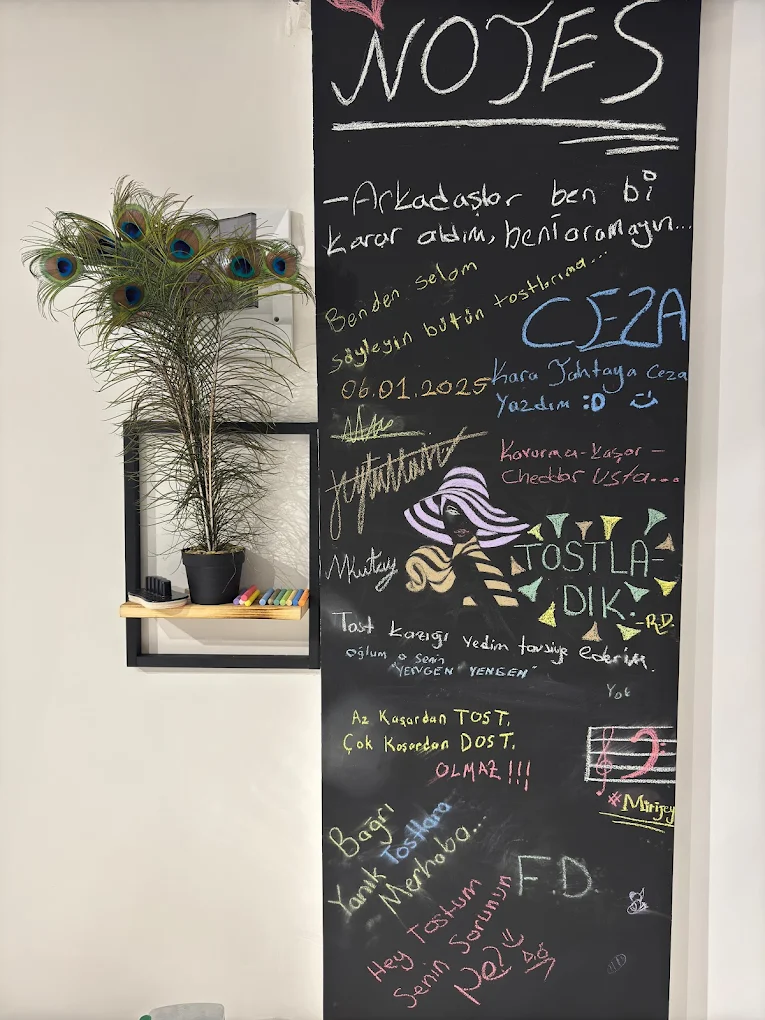 NOTES
- Arkadaşlar ben bi
karar aldım, beni aramayın...
Benden selam
söyleyin bütün tostlarıma...
CEZA
06.01.2025
Kara Tahtaya Ceza
Yazdım :D
Kavurma-Kaşar-
Cheddar Usta...
TOSTLA-
DIK.
-R.D.
Tost kazığı yedim tavsiye ederim.
oğlum o senin
"YENGEN YENGEN"
Yok
Az Kaşardan TOST,
Çok Kaşardan DOST,
OLMAZ!!!
#Mirişey
Bağrı
Yanık Tostlara
Merhaba...
F.D.
Hey Tostum
Senin Sorunun
Ne?